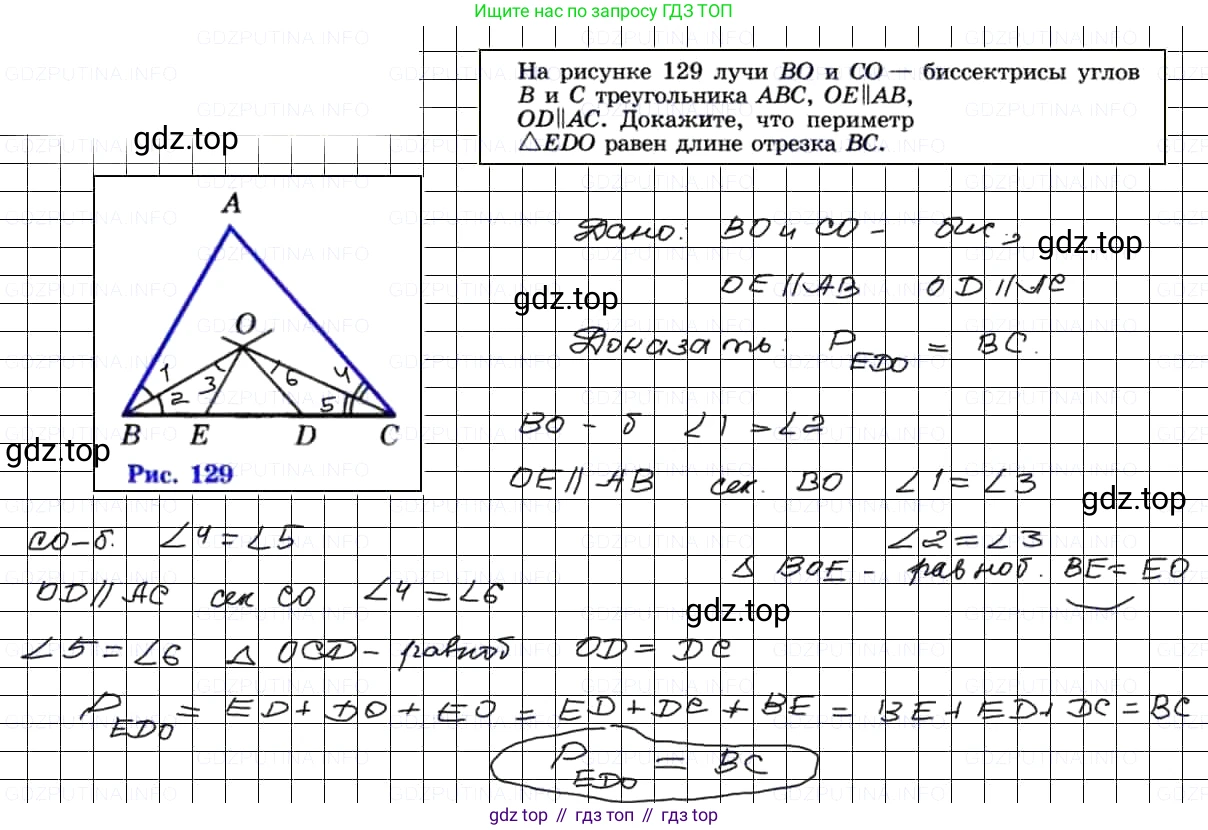 Ищите нас по запросу ГДЗ ТОП
На рисунке 129 лучи BO и CO — биссектрисы углов
B и C треугольника ABC, OE∥AB,
OD∥AC. Докажите, что периметр
△EDO равен длине отрезка BC.
gdz.top
A
O
1
2
3
6
4
5
B E D C
Рис. 129
Дано: BO и CO - бис,
gdz.top
OE ∥ AB OD ∥ AC
gdz.top
Доказать: P EDO = BC.
BO - б ∠1 = ∠2
gdz.top
OE ∥ AB сек. BO ∠1 = ∠3
gdz.top
CO - б. ∠4 = ∠5
∠2 = ∠3
△ BOE - равноб. BE = EO
OD ∥ AC сек CO ∠4 = ∠6
gdz.top
∠5 = ∠6 △ OCD - равноб OD = DC
P EDO = ED + DO + EO = ED + DC + BE = BE + ED + DC = BC
P EDO = BC
gdz top // гдз топ // gdz top
GDZPUTINA.INFO